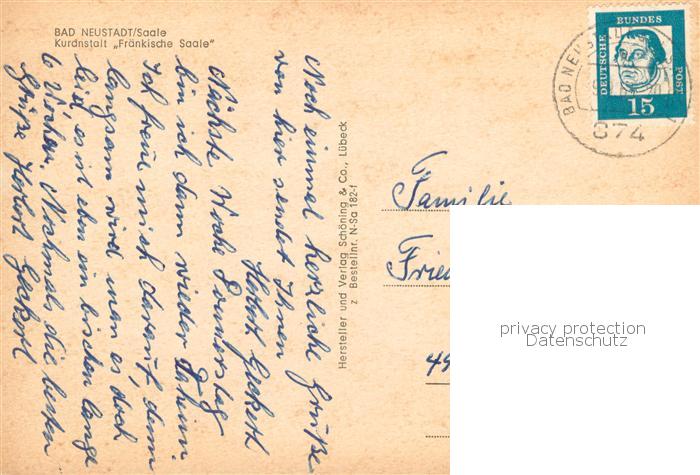 BAD NEUSTADT/Saale
Kuranstalt „Fränkische Saale"
Noch einmal herzliche Grüße
von hier sendet Ihnen
Herbert
Nächste Woche Donnerstag
bin ich dann wieder daheim.
Ich freue mich darauf, denn
langsam wird man es doch
leid, es ist eben ein bischen lange
6 Wochen. Nochmals die besten
Grüße Herbert
Hersteller und Verlag Schöning & Co., Lübeck
z Bestellnr. N-Sa 182-f
DEUTSCHE BUNDES POST
15
BAD NEUS
874
Familie
Fried
49
privacy protection
Datenschutz